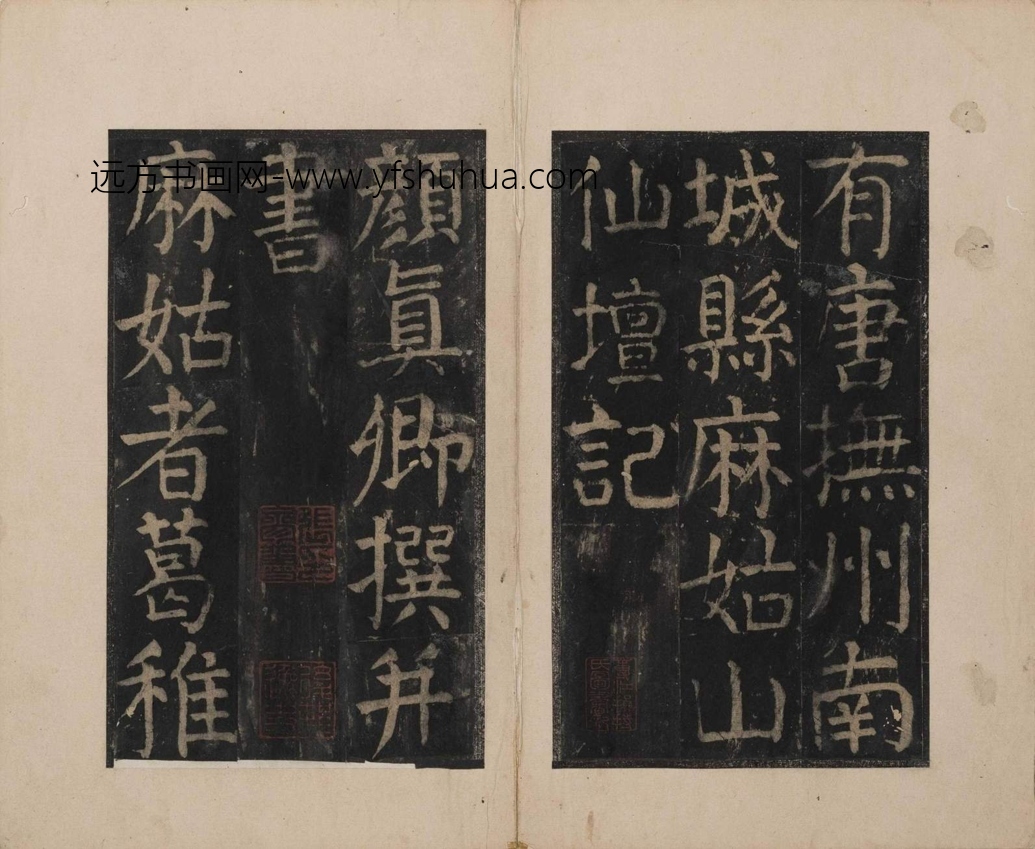 有唐撫州南
城縣麻姑山
仙壇記
顏眞卿撰并
書
麻姑者葛稚
远方书画网-www.yfshuhua.com